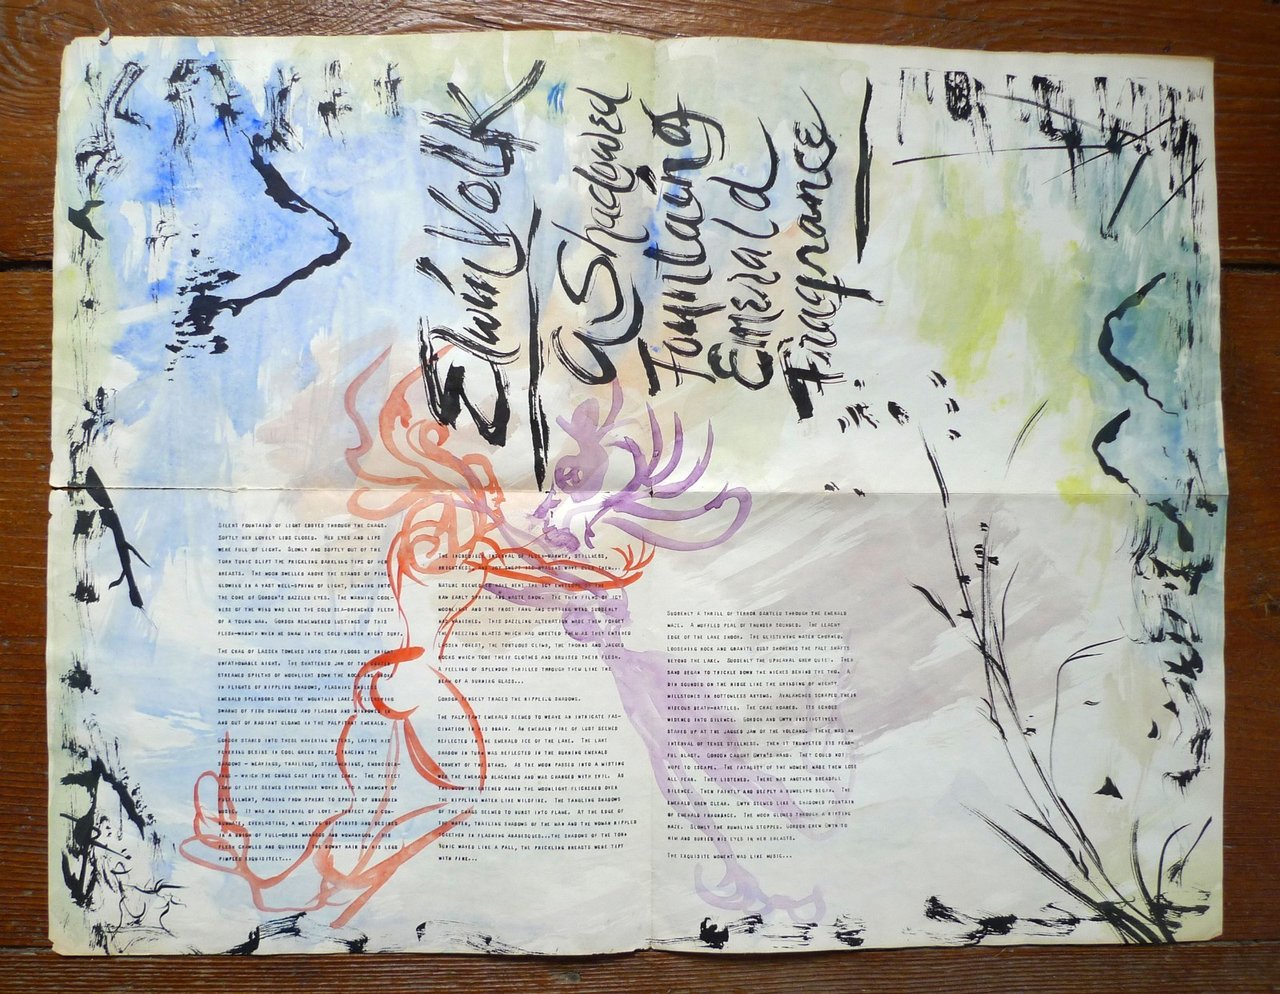 Elwin Volk
a Shadowed
Fountaing
Emerald
Fragrance
SILENT FOUNTAINS OF LIGHT EDDYED THROUGH THE CRAGS.
SOFTLY HER LOVELY LIDS CLOSED. HER EYES AND LIPS
WERE FULL OF LIGHT. SLOWLY AND SOFTLY OUT OF THE
TORN TUNIC SLIPT THE PRICKLING DARKLING TIPS OF HER
BREASTS. THE MOON SWELLED ABOVE THE STANDS OF PINE
GLOWING IN A VAST WELL-SPRING OF LIGHT, BURNING INTO
THE CORE OF GORDON'S DAZZLED EYES. THE WARMING COOL-
NESS OF THE WIND WAS LIKE THE COLD SEA-DRENCHED FLESH
OF A YOUNG MAN. GORDON REMEMBERED LUSTINGS OF THIS
FLESH-WARMTH WHEN HE SWAM IN THE COLD WINTER NIGHT SURF.
THE CRAG OF LASSEN TOWERED INTO STAR FLOODS OF BRIGHT
UNFATHOMABLE NIGHT. THE SHATTERED JAW OF THE CRATER
STREAMED SPILTHS OF MOONLIGHT DOWN THE ROCK AND SNOW
IN FLIGHTS OF RIPPLING SHADOWS, FLASHING SHOALS
EMERALD SPLENDORS OVER THE MOUNTAIN LAKE. FLICKERING
SWARMS OF FISH SHIMMERED AND FLASHED AND WINDOWED IN
AND OUT OF RADIANT GLOAMS IN THE PALPITANT EMERALD.
GORDON STARED INTO THESE WAVERING WATERS, LAVING HIS
FEVERING DESIRE IN COOL GREEN DEEPS, TRACING THE
SHADOWS - WEAVINGS, TRAILINGS, STREAMINGS, EMBROIDER-
INGS - WHICH THE CRAGS CAST INTO THE LAKE. THE PERFECT
FLOW OF LIFE SEEMED EVERYWHERE WOVEN INTO A HARMONY OF
FULFILLMENT, PASSING FROM SPHERE TO SPHERE OF UNBROKEN
MUSIC. IT WAS AN INTERVAL OF LOVE - PERFECT AND CON-
SUMMATE, EVERLASTING, A MELTING OF WHITE-HOT DESIRE
IN A UNION OF FULL-ORBED MANHOOD AND WOMANHOOD. HIS
FLESH CRAWLED AND QUIVERED. THE DOWNY HAIR ON HIS LEGS
PIMPLED EXQUISITELY...
THE INCREDIBLE INTERVAL OF FLESH-WARMTH, STILLNESS,
BRIGHTNESS, AND JOY SWEPT ITS AMAZING WAVE OVER THEM...
NATURE SEEMED TO HAVE RENT THE ICY ENVELOPE OF THE
RAW EARLY SPRING AND WASTE SNOW. THE THIN FILMS OF ICY
MOONLIGHT AND THE FROST FANG AND CUTTING WIND SUDDENLY
HAD VANISHED. THIS DAZZLING ALTERATION MADE THEM FORGET
THE FREEZING BLASTS WHICH HAD GREETED THEM AS THEY ENTERED
LASSEN FOREST, THE TORTUOUS CLIMB, THE THORNS AND JAGGED
ROCKS WHICH TORE THEIR CLOTHES AND BRUISED THEIR FLESH.
A FEELING OF SPLENDOR THRILLED THROUGH THEM LIKE THE
BEAM OF A BURNING GLASS...
GORDON SINGLY TRACED THE RIPPLING SHADOWS.
THE PALPITANT EMERALD SEEMED TO WEAVE AN INTRICATE FAS-
CINATION IN HIS BRAIN. AN EMERALD FIRE OF LUST SEEMED
REFLECTED IN THE EMERALD ICE OF THE LAKE. THE LAKE
SHADOW IN TURN WAS REFLECTED IN THE BURNING EMERALD
TORMENT OF THE STARS. AS THE MOON PASSED INTO A MISTING
WEB THE EMERALD BLACKENED AND WAS CHARGED WITH EVIL. AS
THE MOON BRIGHTENED AGAIN THE MOONLIGHT FLICKERED OVER
THE RIPPLING WATER LIKE WILDFIRE. THE TANGLING SHADOWS
OF THE CRAGS SEEMED TO BURST INTO FLAME. AT THE EDGE OF
THE WATER, TRAILING SHADOWS OF THE MAN AND THE WOMAN RIPPLED
TOGETHER IN FLASHING ARABESQUES...THE SHADOWS OF THE TORN
TUNIC WAVED LIKE A PALL, THE PRICKLING BREASTS WERE TIPT
WITH FIRE...
SUDDENLY A THRILL OF TERROR DARTLED THROUGH THE EMERALD
MAZE. A MUFFLED PEAL OF THUNDER SOUNDED. THE
EDGE OF THE LAKE SHOOK. THE GLISTENING WATER CHURNED.
LOOSENING ROCK AND GRANITE DUST SHOWERED THE PALE SHAFTS
BEYOND THE LAKE. SUDDENLY THE UPHEAVAL GREW QUIET. THEN
SAND BEGAN TO TRICKLE DOWN THE NICHES BEHIND THE TWO.
DIN SOUNDED ON THE RIDGE LIKE THE GRINDING OF MIGHTY
MILLSTONES IN BOTTOMLESS ARTEMS. AVALANCHES SCRAPED THEIR
HIDEOUS DEATH-RATTLES. THE CRAG ROARED. ITS ECHOES
WIDENED INTO SILENCE. GORDON AND GWYN INSTINCTIVELY
STARED UP AT THE JAGGED JAW OF THE VOLCANO. THERE WAS AN
INTERVAL OF TENSE STILLNESS. THEN IT TRUMPETED ITS FEAR-
FUL BLAST. GORDON CAUGHT GWYN'S HAND. THEY COULD NOT
HOPE TO ESCAPE. THE FATALITY OF THE MOMENT MADE THEM LOSE
ALL FEAR. THEY LISTENED. THERE WAS ANOTHER DREADFUL
SILENCE. THEN FAINTLY AND DEEPLY A RUMBLING BEGAN. THE
EMERALD GREW CLEAR. GWYN SEEMED LIKE A SHADOWED FOUNTAIN
OF EMERALD FRAGRANCE. THE MOON GLOWED THROUGH A RIFTING
HAZE. SLOWLY THE RUMBLING STOPPED. GORDON DREW GWYN TO
HIM AND BURIED HIS EYES IN HER BREASTS.
THE EXQUISITE MOMENT WAS LIKE MUSIC...